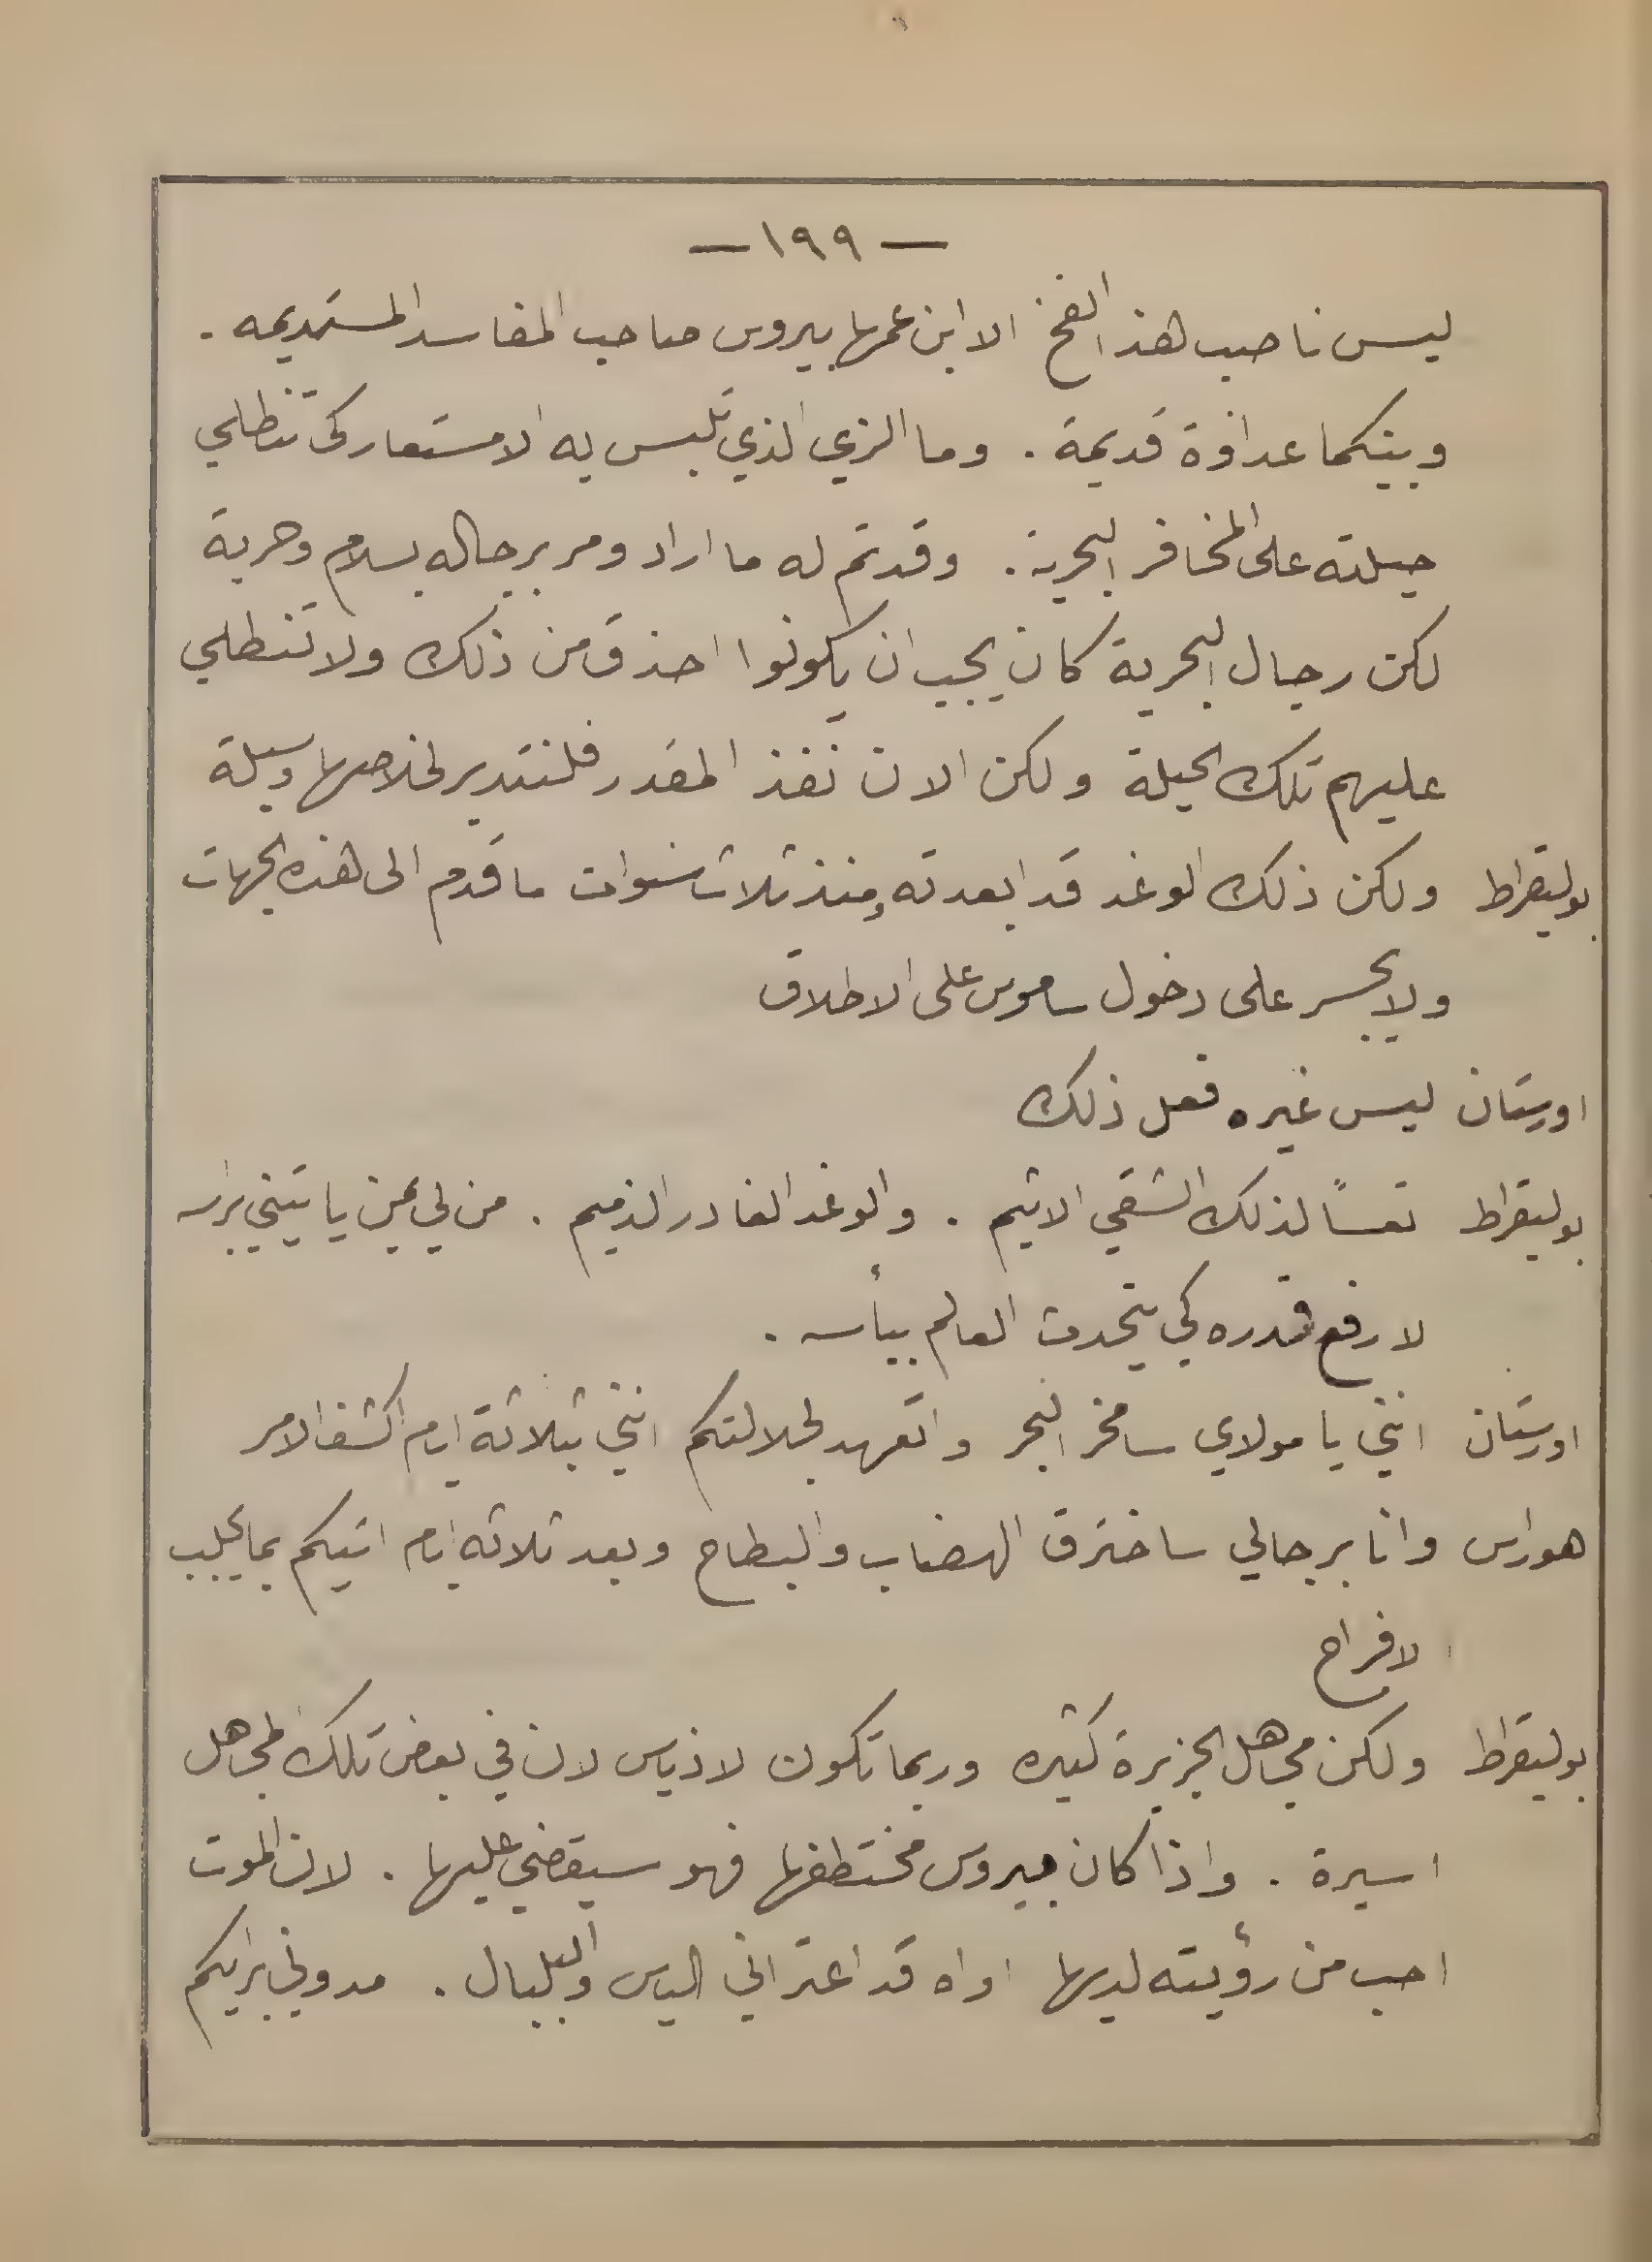 — ١٩٩ —
ليس ناصب هذا الفخ الا ابن عمها بيروس صاحب المفاسد المستديمه .
وبينكما عداوة قديمة . وما الزي الذي تلبس به الا مستعار كي تنطلي
حيلته على المخافر البحرية . وقد تم له ما اراد ومر برجاله بسلام وحرية
لكن رجال البحرية كان يجب ان يكونوا احذق من ذلك ولا تنطلي
عليهم تلك الحيلة ولكن الان نفذ المقدر فلنتدبر لخلاصها وسيلة
بوليقراط ولكن ذلك الوغد قد ابعدته ومنذ ثلاث سنوات ما قدم الى هذه الجهات
ولا يجسر على دخول ساموس على الاطلاق
اورستان ليس غيره فعل ذلك
بوليقراط تعساً لذلك الشقي الاثيم . والوغد الغادر الذميم . من لي بمن يا يتيني براسه
لارفع قدره كي يتحدث العالم ببأسه .
اورستان انني يا مولاي سامخر البحر واتعهد لجلالتكم انني بثلاثة ايام اكشف الامر
هوراس وانا برجالي ساخترق الهضاب والبطاح وبعد ثلاثه ايام اتيكم بما يجلب
الافراح
بوليقراط ولكن مجاهل الجزيرة كثيره وربما تكون لاذياس لان في بعض تلك المجاهل
اسيرة . واذا كان بيروس مختطفها فهو سيقضي عليها . لان الموت
احب من رؤيته لديها اواه قد اعتراني الياس والبلبال . مدوني برايكم